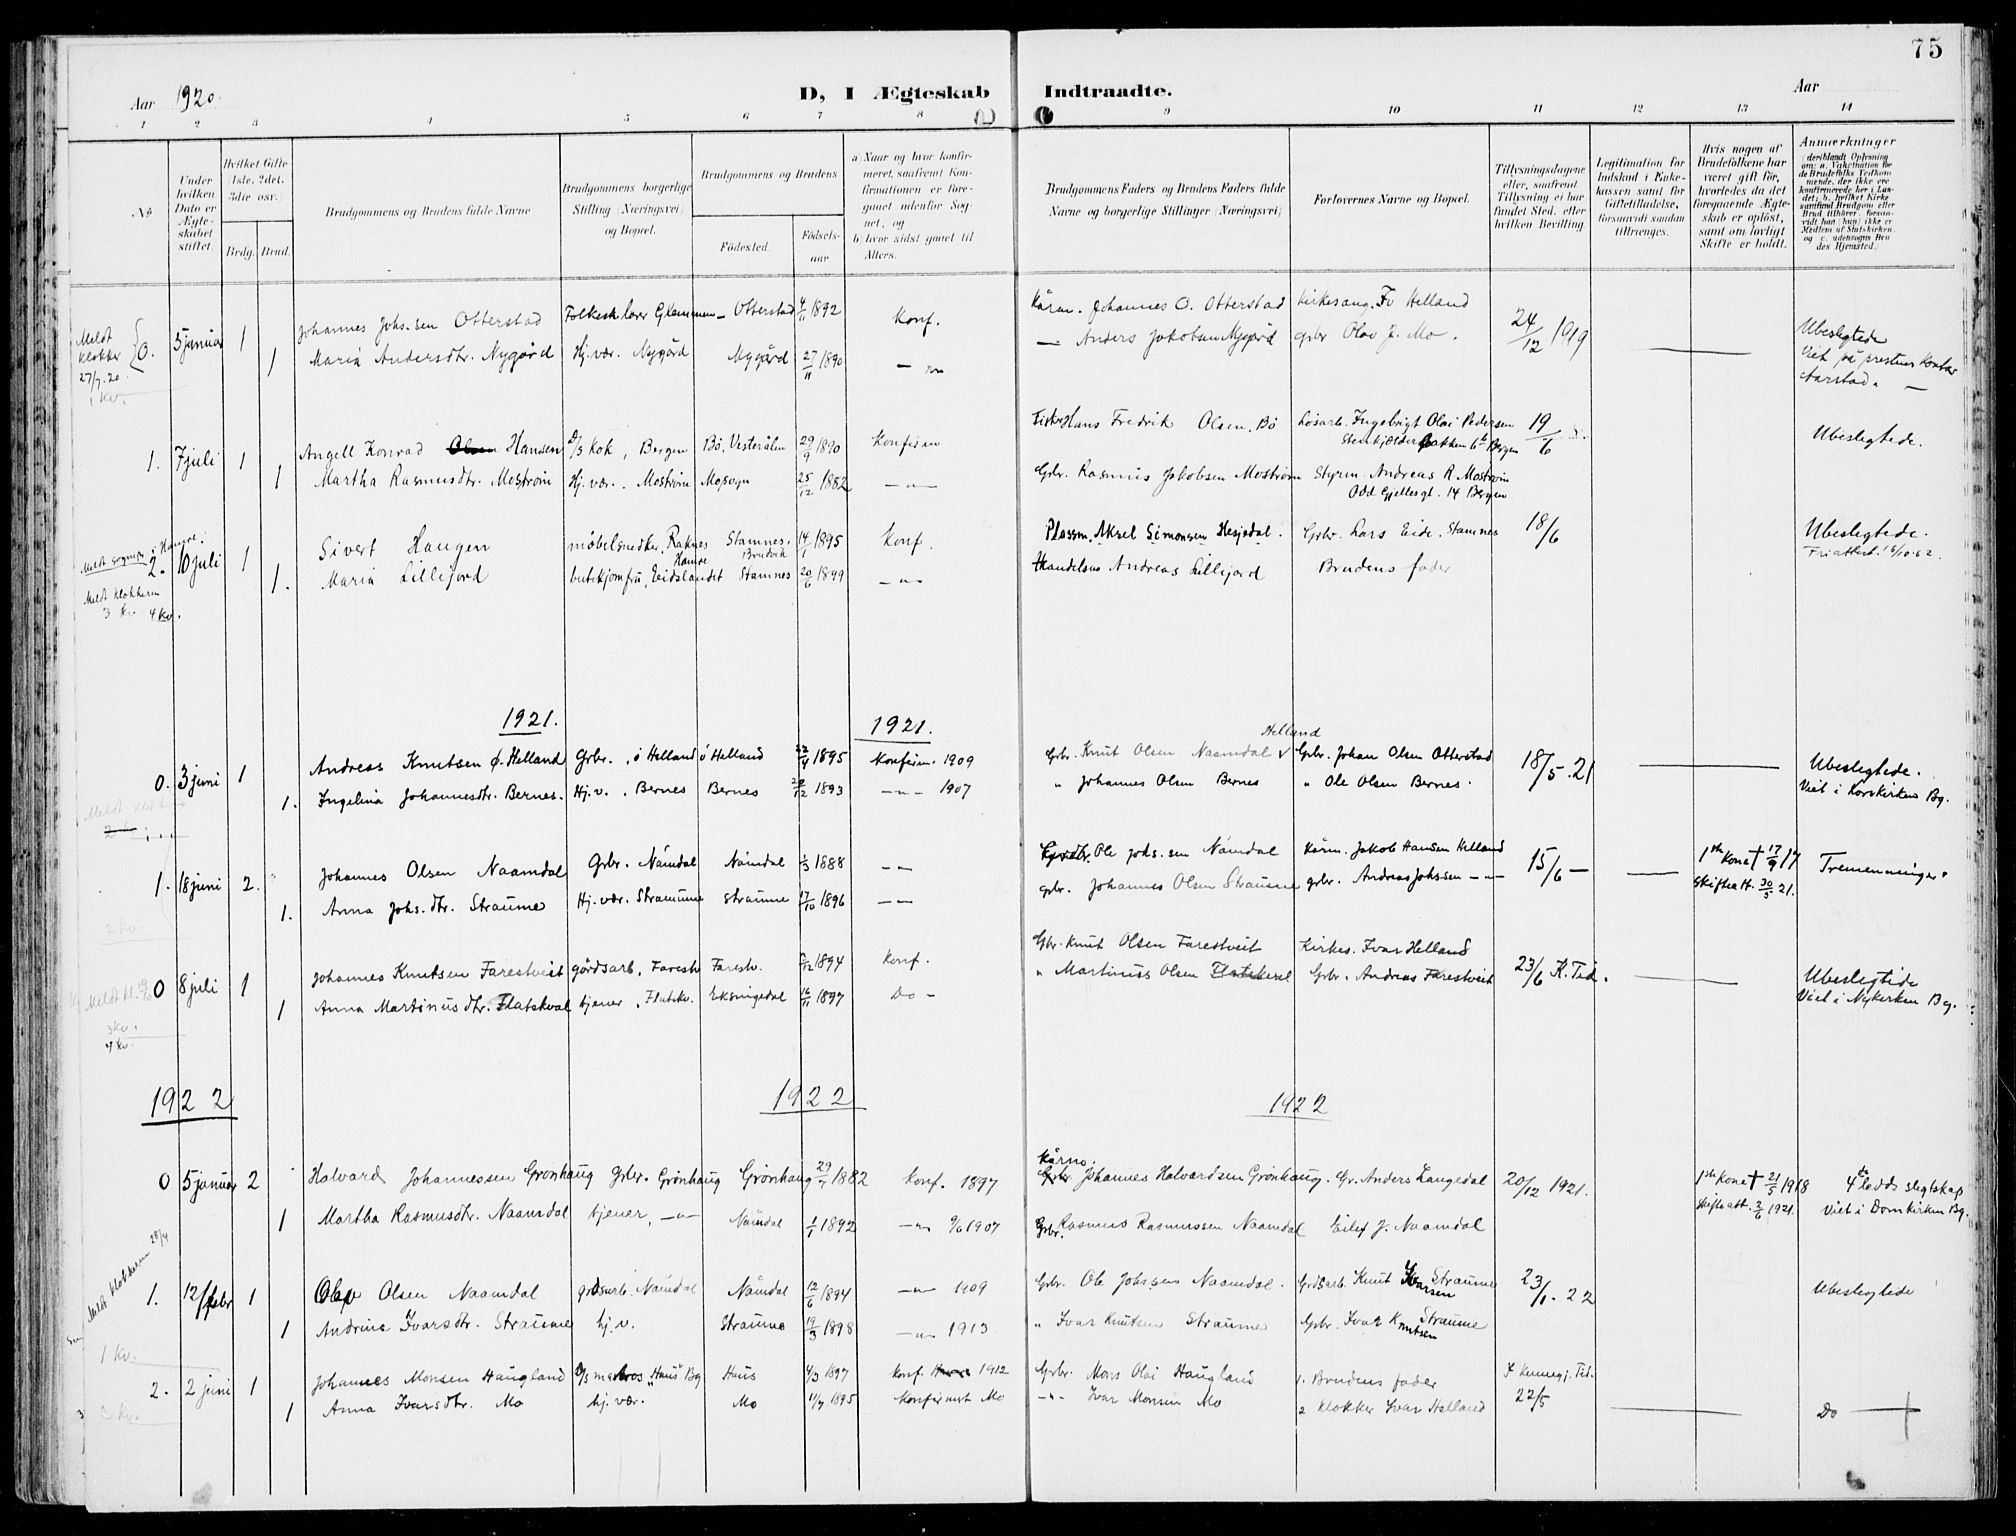 75
Aar 1920.
D, I Ægteskab Indtraadte.
Aar
1 2 3 4 5 6 7 8 9 10 11 12 13 14
No
Under hvilken Dato er Ægteskabet stiftet.
Hvilket Gifte (1ste, 2det, 3die osv.)
Brdg. Brud.
Brudgommens og Brudens fulde Navne
Brudgommens borgerlige Stilling (Næringsvei) og Bopæl.
Brudgommens og Brudens
Fødested. Fødselsaar.
a) Naar og hvor konfirmeret, saafremt Konfirmationen er foregaaet udenfor Sognet, og
b) hvor sidst gaaet til Alters.
Brudgommens Faders og Brudens Faders fulde Navne og borgerlige Stillinger (Næringsvei)
Forlovernes Navne og Bopæl.
Tillysningsdagene eller, saafremt Tillysning ei har fundet Sted, efter hvilken Bevilling.
Legitimation for Indskud i Enkekassen samt for Giftetilladelse, forsaavidt saadan tiltrænges.
Hvis nogen af Brudefolkene har været gift før, hvorledes da det foregaaende Ægteskab er opløst, samt om lovligt Skifte er holdt.
Anmærkninger
Meldt klokker 27/7.20. 1 Kv.
0. 5 januar 1 Johannes Johs.sen Otterstad Folkesk.lærer Otterstad 4/11 1892 Konf. Kårm. Johannes O. Otterstad Kirkesang. Iv Helland 24/12 1919 Ubeslegtede
1 Maria Andersdtr. Nygård Hj.vær. Nygård Nygård 27/11 1890 — „ — — Anders Jakobsen Nygård gbr Olav J. Mo. Viet på prestens kontor Aarstad.
1. 7 juli 1 Angell Konrad Olsen Hansen D/S Kok, Bergen Bö, Vesterålen 29/9 1890 Konfirm Fisker Hans Fredrik Olsen, Bö Løsarb. Ingebrigt Olai Pedersen 19/6 Ubeslegtede.
1 Martha Rasmusdtr. Moström Hj.vær. Moström Mosogn 25/12 1882 — „ — Gbr. Rasmus Jakobsen Moström Styrm. Andreas R. Moström
Odd Gjellesgt. 14 Bergen
2. 10 juli 1 Sivert Haugen möbelsnedker, Raknes Hamre Stamnes, Bruvik 14/1 1895 Konf. Plassm. Aksel Simonsen Hesjedal. Grbr. Lars Eide, Stamnes 18/6 Ubeslegtede.
Meldt klokkeren 3 Kv 4 Kv.
1. Maria Lillejord butikjomfru, Eidslandet Stamnes 20/6 1899 — „ — Handelsm Andreas Lillejord Brudens fader
1921. 1921.
0. 3 juni 1 Andreas Knutsen ö. Helland Grbr. ö Helland ö Helland 22/4 1895 Konfirm. 1909 Grbr. Knut Olsen Naamdal Helland Grbr. Johan Olsen Otterstad 18/5.21 Ubeslegtede.
1. Ingelina Johannesdtr. Bernes. Hj.v. Bernes Bernes 1893 — „ — 1907 „ Johannes Olsen Bernes „ Ole Olsen Bernes. Viet i Korskirken Bg.
1. 18 juni 2. Johannes Olsen Naamdal Grbr. Nåmdal Nåmdal 1/3 1888 — „ — Ole Johs.sen Nåmdal Kårm. Jakob Hansen Helland 15/6 — 1ste Kone † 17/9 17 Tremenninger.
1. Anna Johs.dtr. Straume Hj.vær. Straume Straume 17/10 1896 — „ — grbr. Johannes Olsen Straume grbr. Andreas Johssen — „ — Skifteatt. 30/5 21.
2 Kv.
0 8 juli 1 Johannes Knutsen Farestveit gårdsarb. Farestv Farestv. 1894 Konf. Gbr. Knut Olsen Farestveit Kirkes. Ivar Helland 23/6 K. Tid. Ubeslegtede
1 Anna Martinusdtr. Flatekval tjener, Flatekv. Eksingedal 16/11 1897 Do — „ Martinus Olsen Flatekval Grbr. Andreas Farestveit Viet i Nykirken Bg.
3 Kv.
4 Kv.
1922 1922 1922
0 5 januar 2 Halvard Johannessen Grönhaug Grbr. Grönhaug Grönhaug 1882 Konf. 1897 Kårm. Grbr Johannes Halvardsen Grönhaug. Gr. Anders Langedal 20/12 1921. 1ste Kone † 21/5 1918 4de ledds slegtskap
1 Martha Rasmusdtr. Naamdal tjener, — „ — Nåmdal 1/1 1892 — „ — 1907 Grbr. Rasmus Rasmussen Naamdal Eilef J. Naamdal Skifteatt. 2/6 1921. Viet i Domkirken Bg.
Meldt klokkeren 28/4
1. 12/febr 1 Olav Olsen Naamdal grdsarb. Nåmdal Nåmdal 12/6 1894 — „ — 1909 Grbr. Ole Johssen Naamdal. Grdsarb. Knut Ivarsen Straume 23/1. 22 Ubeslegtede
1 Andrina Ivarsdtr. Straume hj.v. Straume 19/3 1898 — „ — 1913 „ Ivar Knutsen Straume Grbr. Ivar Knutsen Straume
1 Kv.
2. 2 juni 1 Johannes Monsen Haugland D/S matros „Haus" Bg Haus 4/3 1897 Konf. Haus 1912 Grbr. Mons Olai Haugland 1. Brudens fader
1 Anna Ivarsdtr. Mo hj.vær. Mo 11/7 1895 Konfirmert Mo — „ — Ivar Monsen Mo 2 Klokker Ivar Helland 22/5 Do